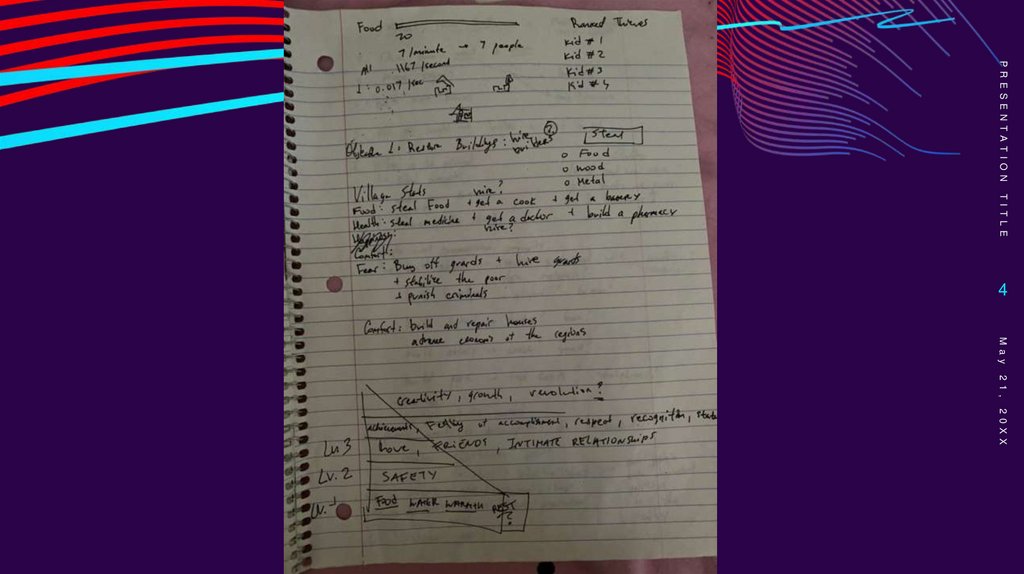 Food
20
7/minute → 7 people
All .1167/second
1: 0.017/sec
Ranked Thieves
Kid #1
Kid #2
Kid #3
Kid #4
Food
Obstacle 1: Restore Buildings: hire builders
2
Steal
o Food
o wood
o Metal
Village Stats
hire?
Food: Steal Food + get a cook + get a bakery
Health: Steal medicine + get a doctor + build a pharmacy
hire?
Comfort:
Fear: Buy off guards + hire guards
+ stabilize the poor
+ punish criminals
Comfort: build and repair houses
advance economy of the regions
creativity, growth, revolution?
achievement, Feeling of accomplishment, respect, recognition, status
Lv 3 Love, FRIENDS, INTIMATE RELATIONSHIPS
Lv. 2 SAFETY
Lv. 1 Food WATER WARMTH REST
?
PRESENTATION TITLE
4
May 21, 20XX